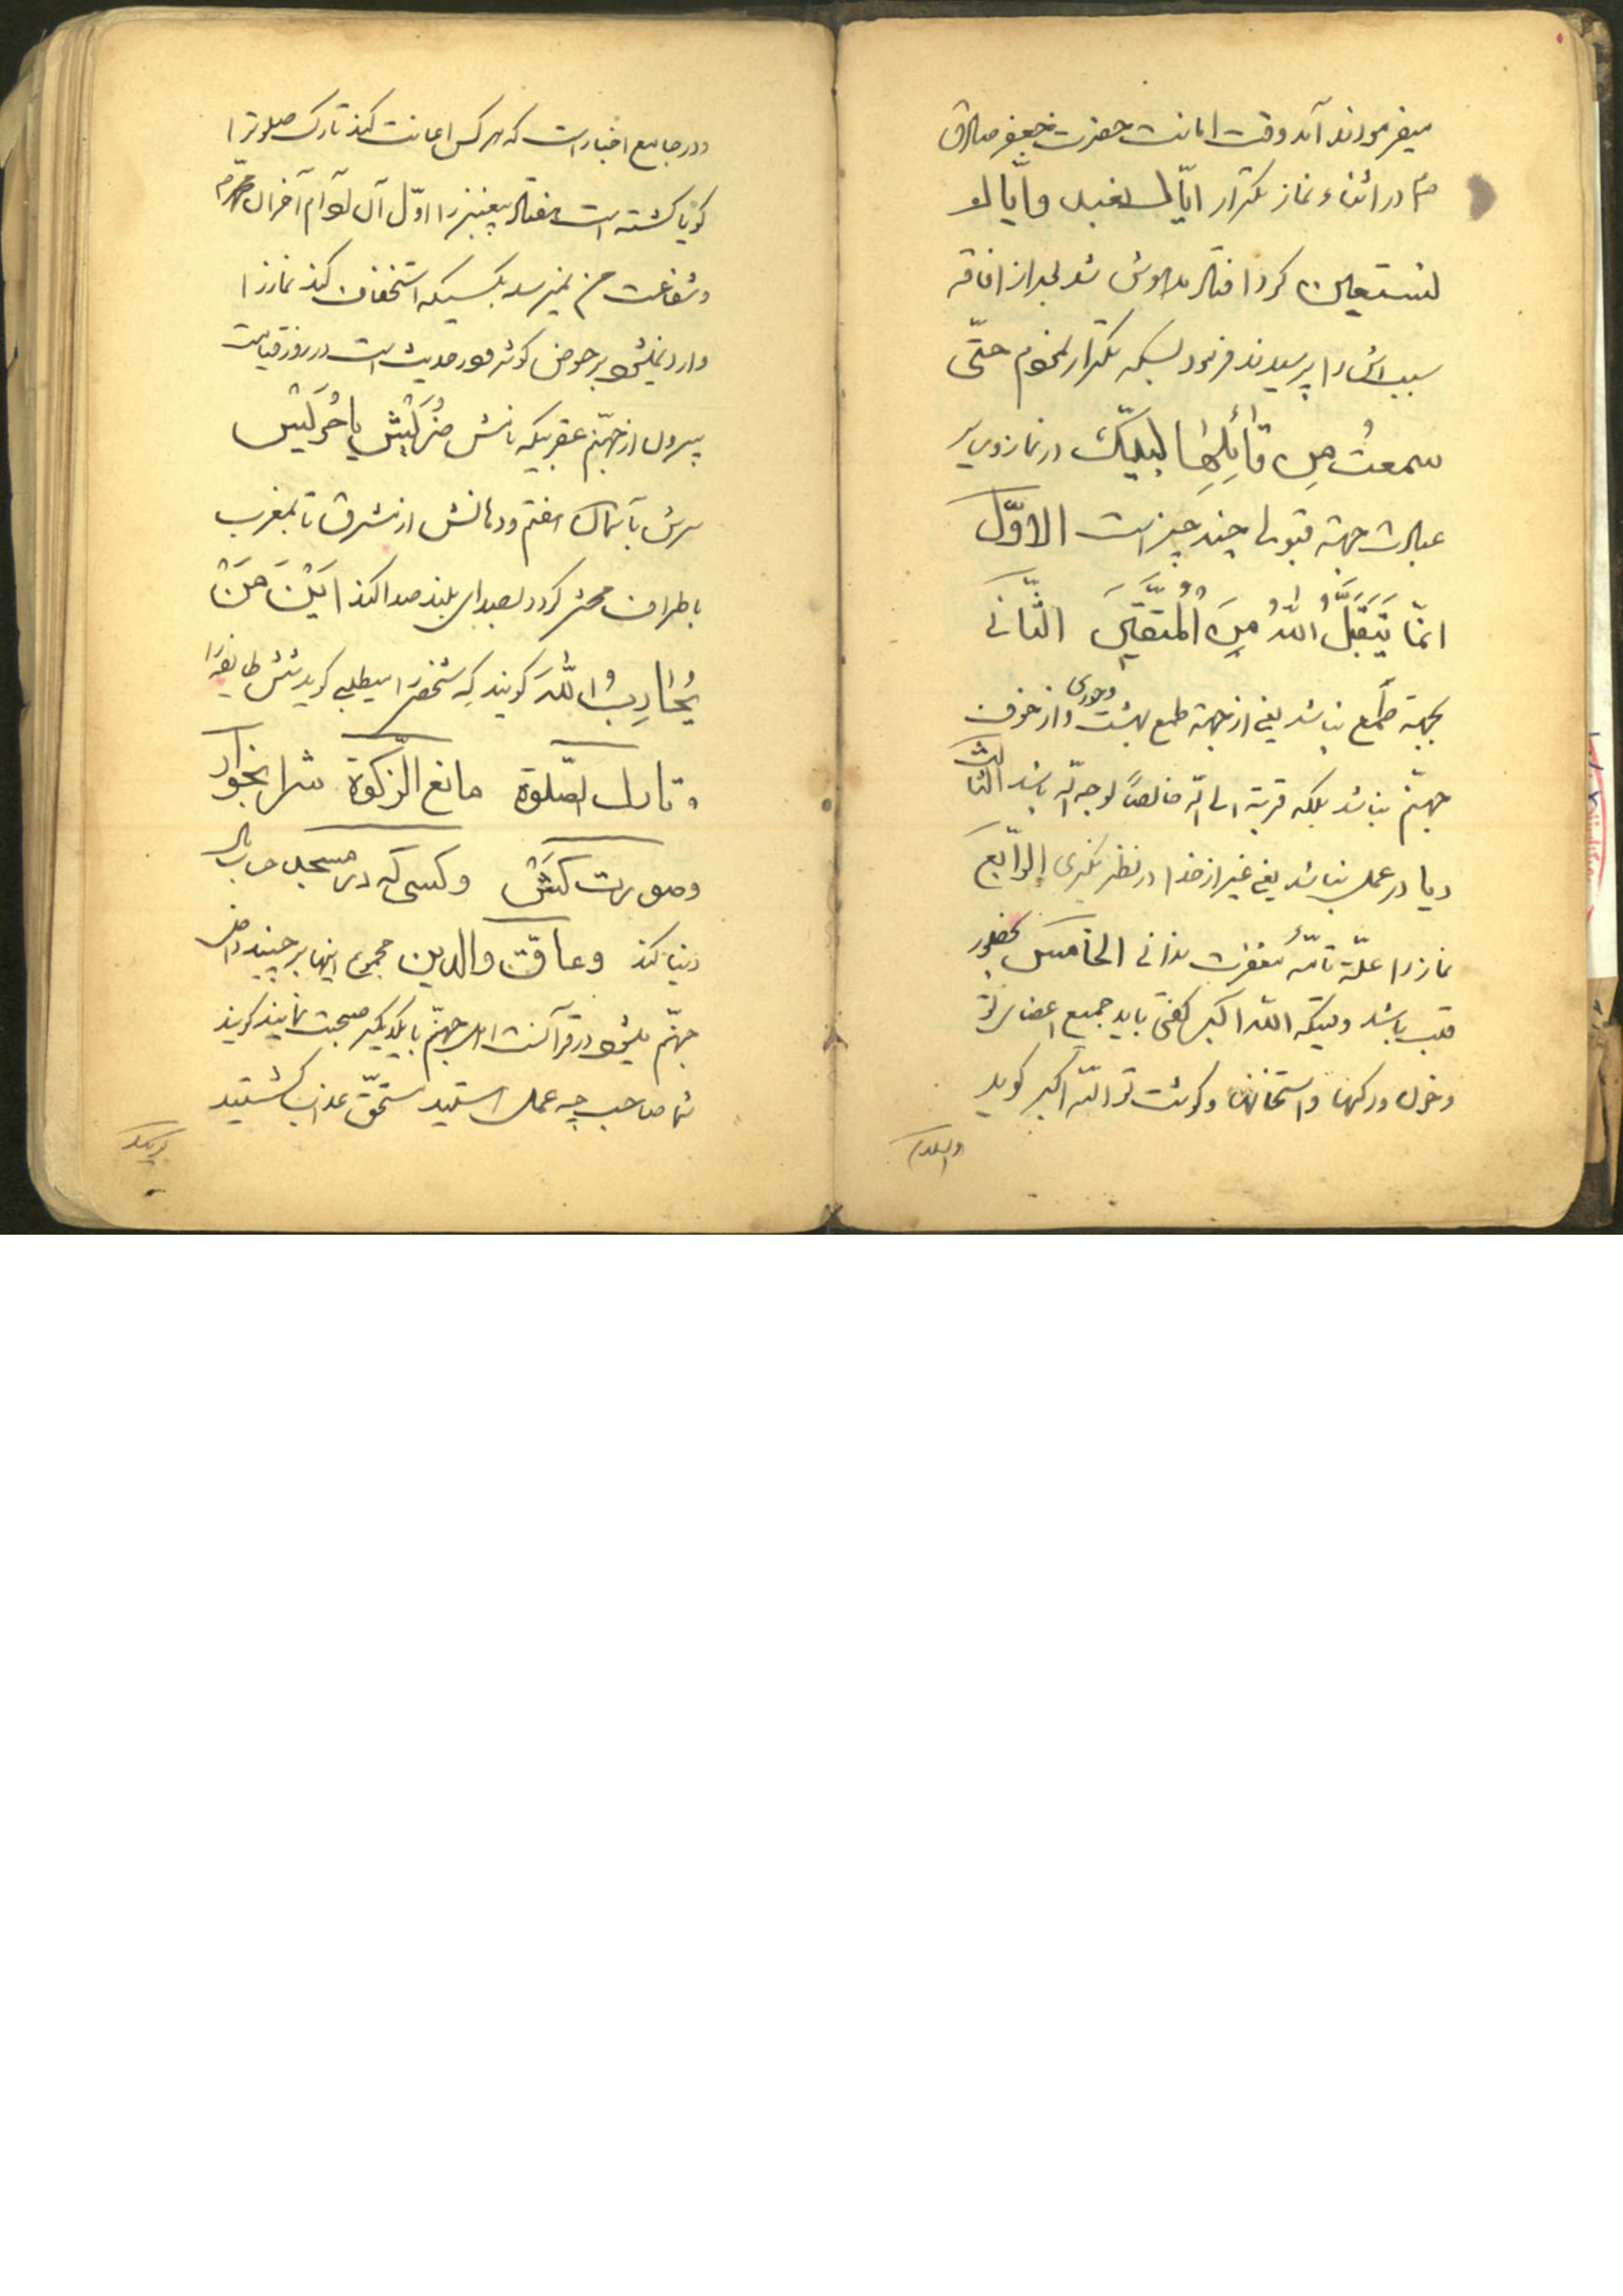 میفرمودند آمد وقت امانت حضرت جعفر صادق
در اثناء نماز بتکرار ایّاک نعبد و ایّاک
نستعین کرد افتاد مدهوش شد بعد از افاقه
سبب اش را پرسیدند فرمود بسکه تکرار نمودم حتّی
سمعتُ مِن قائِلِها لبیک در نماز وبر
عبادت جهة قبولی چند چیز است الاوّل
انمّا یَتَقَبَّلُ اللهُ مِنَ الْمُتَّقینَ الثّانی
بجهة طمع نباشد یعنی از جهة طمع بهشت وحوری و از خوف
جهنّم نباشد بلکه قربة الی الله خالصاً لوجه الله باشد الثالث
ریا در عمل نباشد یعنی غیر از خدا در نظر نگیری الرّابع
نماز را علّة تامّهٔ مغفرت ندانی الخامس بحضور
قلب باشد وقتیکه الله اکبر گفتی باید جمیع اعضای تو
وخون ورکها واستخوان وکوشت تو الله اکبر کوید
ودر جامع اخبار است که هر کس اعانت کند تارک صلوة را
کویا کشته است هفتاد پیغمبر را اوّل آن آدم آخر آن محمّد
وشفاعت من نمیرسد بکسیکه استخفاف کند نماز را
وارد نمیشود بر حوض کوثر ودر حدیث است در روز قیامت
بیرون از جهنّم عقربیکه نامش حُرَیْش یا حُرَیش
سرش بآسمان هفتم ودمانش از مشرق تا بمغرب
باطراف محشر کردد بصدای بلند صدا کند اَیْنَ مَنْ
یُحٰارِبُ اللّٰهَ کویند که شخص را میطلبی کوید شش طایفه را
تارک الصّلوة مانع الزّکوة شرابخوار
وصورت کَشْ وکسی که در مسجد حرف
دنیا کند وعاقّ والدین مجموع اینها بر چیند داخل
جهنّم میشود در قرآنست اهل جهنّم با یکدیگر صحبت نمایند کویند
شما صاحب چه عمل هستید مستحقّ عذاب کشتید